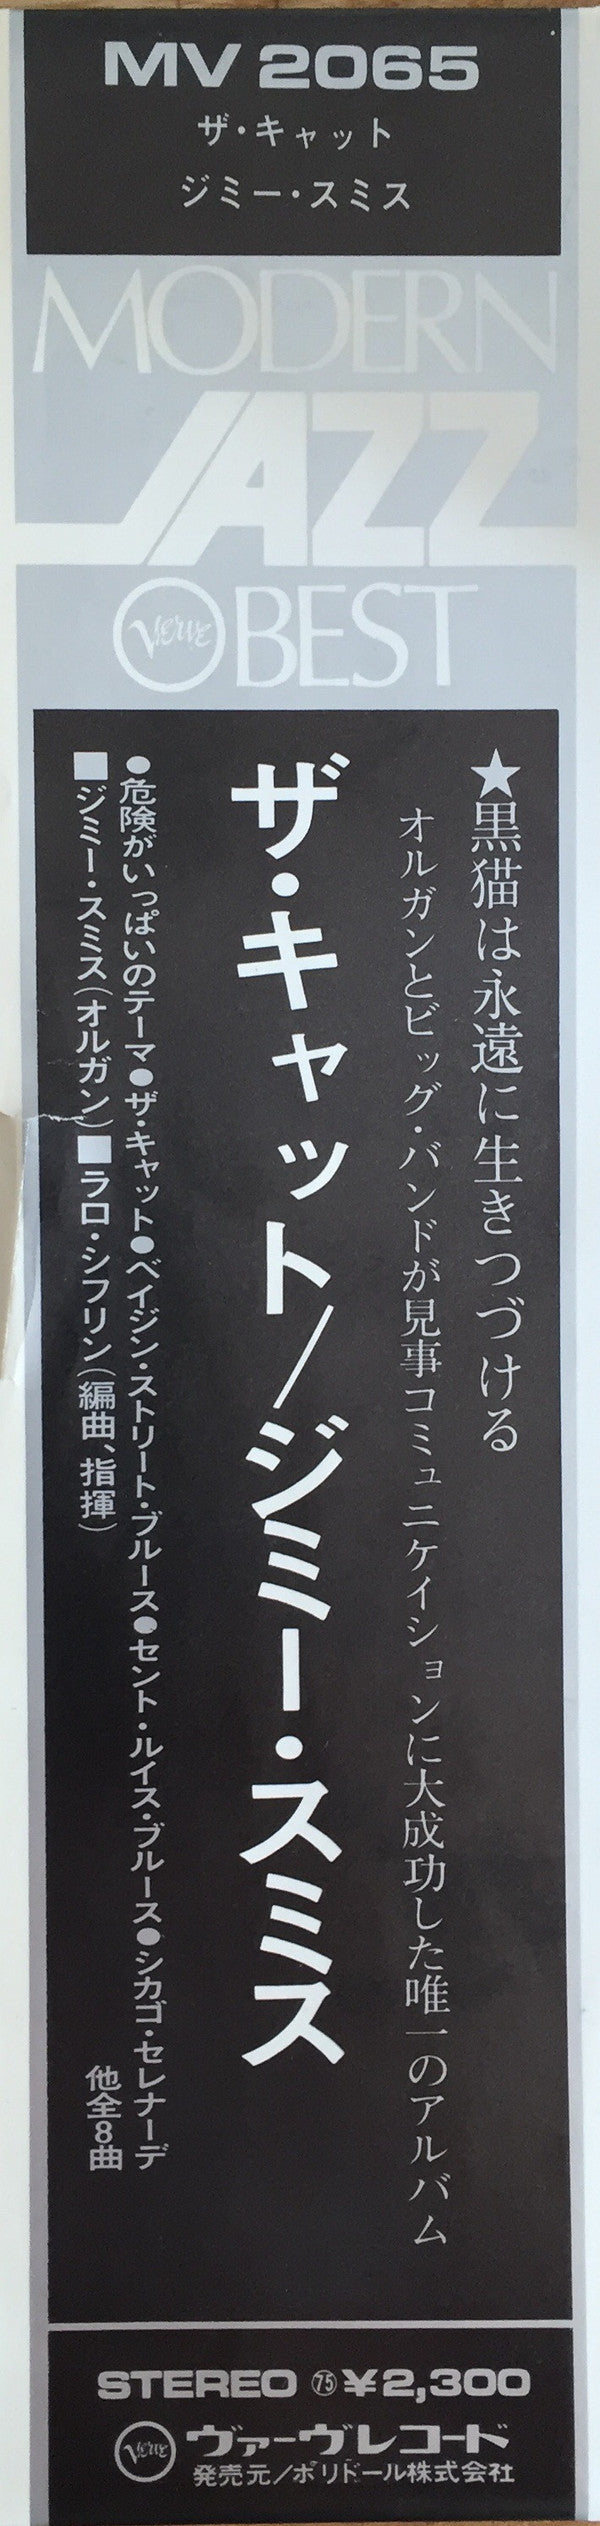 MV 2065
ザ・キャット
ジミー・スミス
MODERN
JAZZ
Verve BEST
★黒猫は永遠に生きつづける
オルガンとビッグ・バンドが見事コミュニケイションに大成功した唯一のアルバム
ザ・キャット/ジミー・スミス
●危険がいっぱいのテーマ●ザ・キャット●ベイジン・ストリート・ブルース●セント・ルイス・ブルース●シカゴ・セレナーデ
他全8曲
■ジミー・スミス(オルガン)■ラロ・シフリン(編曲、指揮)
STEREO ㊆㊄ ¥2,300
Verve ヴァーヴレコード
発売元/ポリドール株式会社